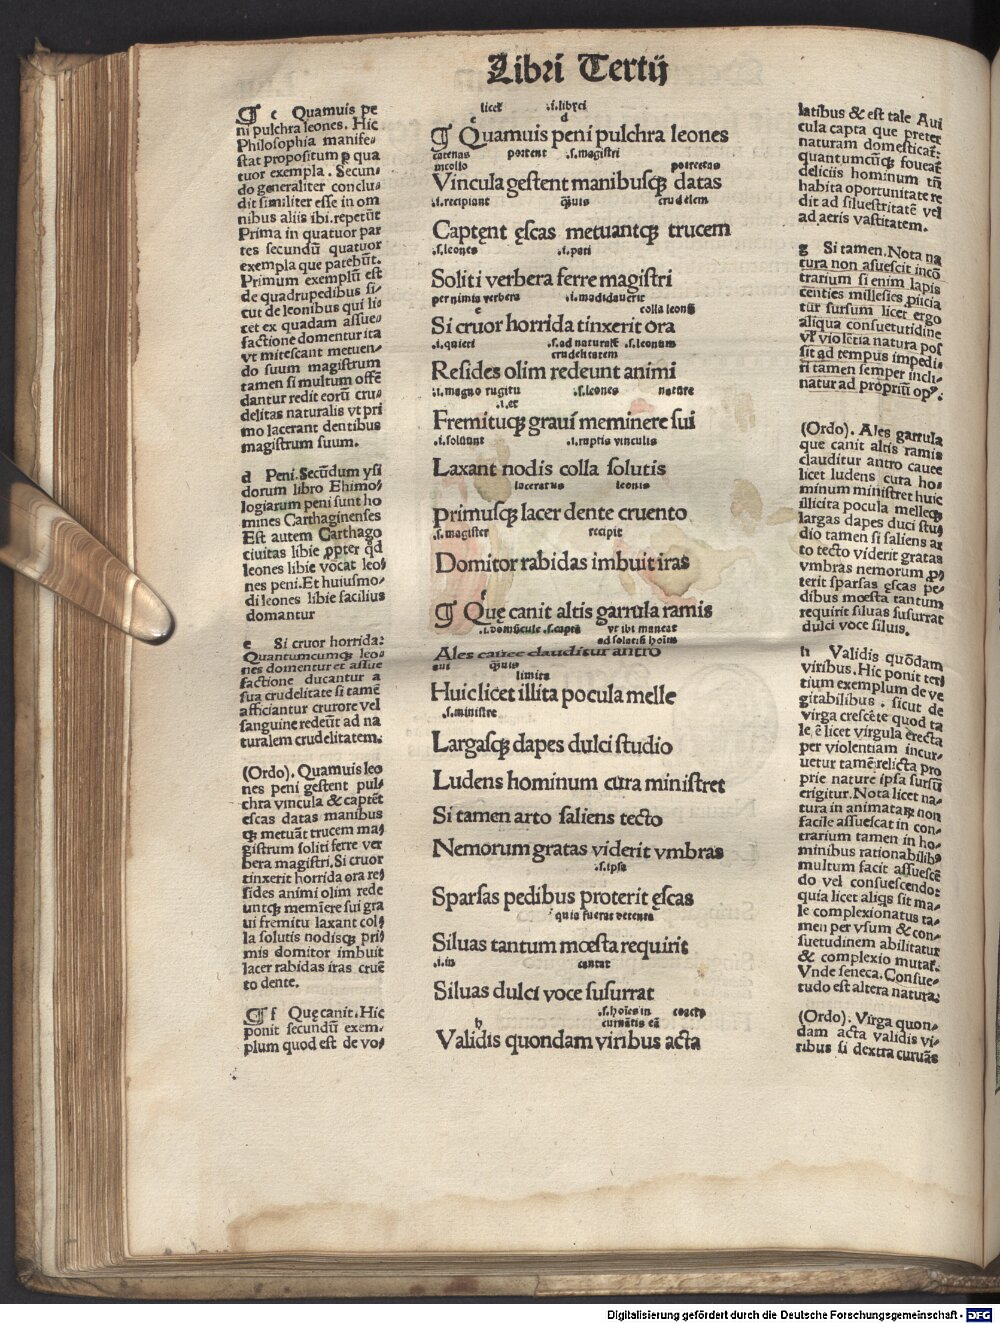 Libri Tertij
¶ c Quamuis pe
ni pulchra leones. Hic
Philosophia manife⸗
stat propositum ꝑ qua
tuor exempla. Secun⸗
do generaliter conclu⸗
dit similiter esse in om
nibus aliis ibi.repetūt
Prima in quatuor par
tes secundū quatuor
exempla que patebūt.
Primum exemplū est
de quadrupedibus si⸗
cut de leonibus qui li⸗
cet ex quadam assue⸗
factione domentur ita
vt mitescant metuen⸗
do suum magistrum
tamen si multum offē
dantur redit eorū cru⸗
delitas naturalis vt pri
mo lacerant dentibus
magistrum suum.
d Peni. Secūdum ysi
dorum libro Ethimo⸗
logiarum peni sunt ho
mines Carthaginenses
Est autem Carthago
ciuitas libie ꝓpter qd̄
leones libie vocat leo⸗
nes peni. Et huiusmo⸗
di leones libie facilius
domantur
e Si cruor horrida:
Quantumcumqꝫ leo⸗
nes domentur et assue
factione ducantur a
sua crudelitate si tamē
afficiantur cruore vel
sanguine redeūt ad na
turalem crudelitatem.
(Ordo). Quamuis leo
nes peni gestent pul⸗
chra vincula & captēt
escas datas manibus
qꝫ metuāt trucem ma⸗
gistrum soliti ferre ver
bera magistri. Si cruor
tinxerit horrida ora re⸗
sides animi olim rede
untqꝫ meminere sui gra
ui fremitu laxant col⸗
la solutis nodisqꝫ pri⸗
mis domitor imbuit
lacer rabidas iras cruē
to dente.
¶ f Que canit. Hic
ponit secundū exem⸗
plum quod est de vo⸗
licet .s.libyci
c d
¶ Quamuis peni pulchra leones
catenas portent .s.magistri
incollo porrectas
Vincula gestent manibusqꝫ datas
.i.recipiant quis crudelem
Captent ęscas metuantqꝫ trucem
.s.leones .i.pati
Soliti verbera ferre magistri
per nimia verbera .i.madidauerit
e colla leonū
Si cruor horrida tinxerit ora
.i.quieti .s.ad naturalē .s.leonum
crudelitatem
Resides olim redeunt animi
.i.magno rugitu .s.leones nature
.i.et
Fremituqꝫ graui meminere sui
.i.soluunt .i.ruptis vinculis
Laxant nodis colla solutis
laceratus leonis
Primusqꝫ lacer dente cruento
.s.magister recipit
Domitor rabidas imbuit iras
f
¶ Quę canit altis garrula ramis
.i.domicule .s.capta vt ibi maneat
ad solatiū hoīis
Ales caueę clauditur antro
aui quis
limita
Huic licet illita pocula melle
.s.ministre
Largasqꝫ dapes dulci studio
Ludens hominum cura ministret
Si tamen arto saliens tecto
Nemorum gratas viderit vmbras
.s.ipsa
Sparsas pedibus proterit ęscas
quia fuerat detenta
Siluas tantum mœsta requirit
.i.in cantat
Siluas dulci voce susurrat
.s.hoīes in coacta
h curuātis eā
Validis quondam viribus acta
latibus & est tale Aui
cula capta que preter
naturam domesticat̄:
quantumcūqꝫ foueat̄
deliciis hominum tn̄
habita oportunitate re
dit ad siluestritatē vel
ad aeris vastitatem.
g Si tamen. Nota na
tura non asuescit incō
trarium si enim lapis
centies millesies piicia
tur sursum licet ergo
aliqua consuetutidine
vl̄ violētia natura pos
sit ad tempus impedi⸗
ri tamen semper incli⸗
natur ad propriū opꝰ.
(Ordo). Ales garrula
que canit altis ramis
clauditur antro cauee
licet ludens cura ho⸗
minum ministret huic
illicita pocula melleqꝫ
largas dapes duci stu⸗
dio tamen si saliens ar
to tecto viderit gratas
vmbras nemorum ꝓ⸗
terit sparsas ęscas pe⸗
dibus mœsta tantum
requirit siluas susurrat
dulci voce siluis.
h Validis quōdam
viribus. Hic ponit ter⸗
tium exemplum de ve
gitabilibus. sicut de
virga crescēte quod ta
le ē licet virgula erecta
per violentiam incur⸗
uetur tamē relicta pro
prie nature ipsa sursū
erigitur. Nota licet na⸗
tura in animatarꝫ non
facile assuescat in con⸗
trarium tamen in ho⸗
minibus rationabilibꝰ
multum facit assuescē
do vel consuescendo:
quia licet aliqs sit ma⸗
le complexionatus ta⸗
men per vsum & con⸗
suetudinem abilitatur
& complexio mutat̄.
Vnde seneca. Consue⸗
tudo est altera natura:
(Ordo). Virga quon⸗
dam acta validis vi⸗
ribus si dextra curuās
Digitalisierung gefördert durch die Deutsche Forschungsgemeinschaft - DFG